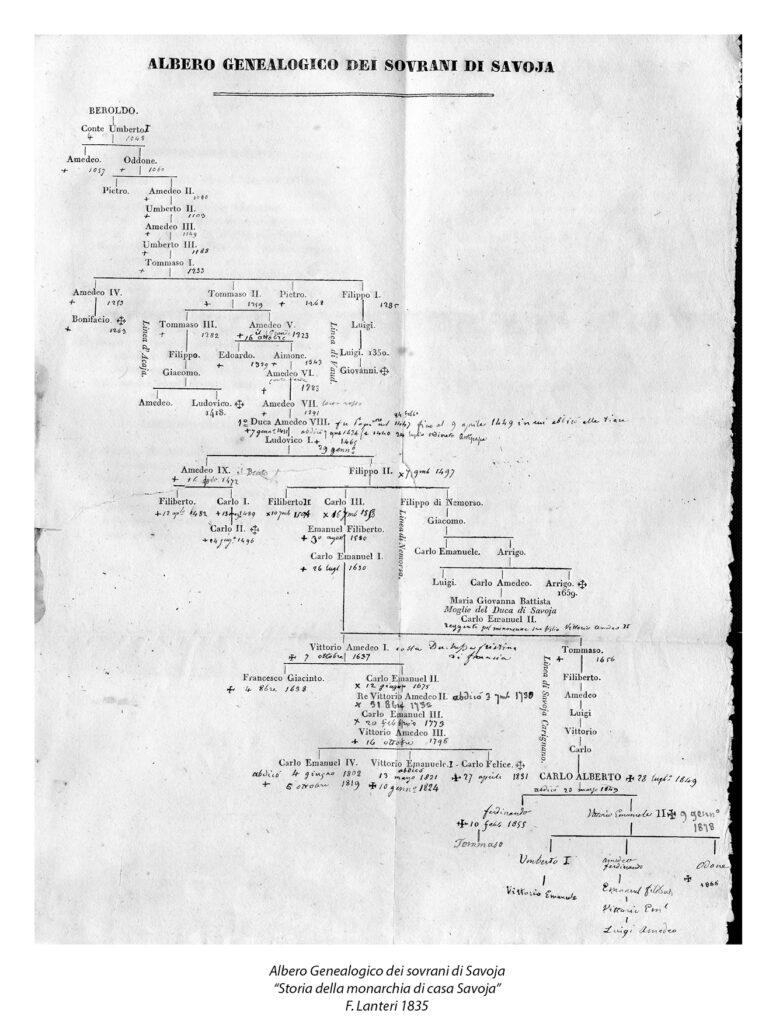 ALBERO GENEALOGICO DEI SOVRANI DI SAVOJA
BEROLDO.
Conte Umberto I
+ 1048
Amedeo. Oddone.
+ 1057 + 1060
Pietro. Amedeo II.
+ 1080
Umberto II.
+ 1103
Amedeo III.
+ 1149
Umberto III.
+ 1188
Tommaso I.
+ 1233
Amedeo IV. Tommaso II. Pietro. Filippo I.
+ 1253 + 1259 + 1268 1285
Bonifacio.
+ 1263
Linea d'Acaja.
Linea di Vaud.
Tommaso III. Amedeo V. Luigi.
+ 1282 + 16 ottobre 1323
Filippo. Edoardo. Aimone. Luigi. 1350.
+ 1329 + 1343
Giacomo. Amedeo VI. Giovanni.
+ 1383
Amedeo. Ludovico. Amedeo VII. conte rosso
1418. + 1391
1º Duca Amedeo VIII. fu Papa nel 1447 fino al 9 aprile 1449 in cui abdicò alla tiara
Ludovico I. + 1465
29 genn°
Amedeo IX. il Beato Filippo II. × 7 9mb 1497
1472
Filiberto. Carlo I. Filiberto II Carlo III. Filippo di Nemorso.
1482 1489
Linea di Nemorso.
Carlo II. Emanuel Filiberto. Giacomo.
1496 + 30 agos 1580
Carlo Emanuel I. Carlo Emanuele. Arrigo.
+ 26 lugl 1630
Luigi. Carlo Amedeo. Arrigo.
1659.
Maria Giovanna Battista
Moglie del Duca di Savoja
Carlo Emanuel II.
Vittorio Amedeo I. Tommaso.
7 ottobre 1637 di Francia + 1656
Linea di Savoja Carignano.
Francesco Giacinto. Carlo Emanuel II. Filiberto.
4 8bre 1638 × 12 giugno 1675
Re Vittorio Amedeo II. abdicò 3 7mb 1730 Amedeo
× 31 8bre 1732
Carlo Emanuel III. Luigi
× 20 febbraio 1773
Vittorio Amedeo III. Vittorio
+ 16 ottobre 1796
Carlo
Carlo Emanuel IV. Vittorio Emanuele I - Carlo Felice.
abdicò 4 giugno 1802 abdicò 13 marzo 1821 27 aprile 1831
+ 6 ottobre 1819 10 genn° 1824
CARLO ALBERTO 28 lugl° 1849
abdicò 20 marzo 1849
ferdinando Vittorio Emanuele II 9 genn°
10 feb 1855 1878
Tommaso
Umberto I amedeo ferdinando Odone
1866
Vittorio Emanuele Emanuel filiberto
Vittorio Eml
Luigi Amedeo
Albero Genealogico dei sovrani di Savoja
“Storia della monarchia di casa Savoja”
F. Lanteri 1835